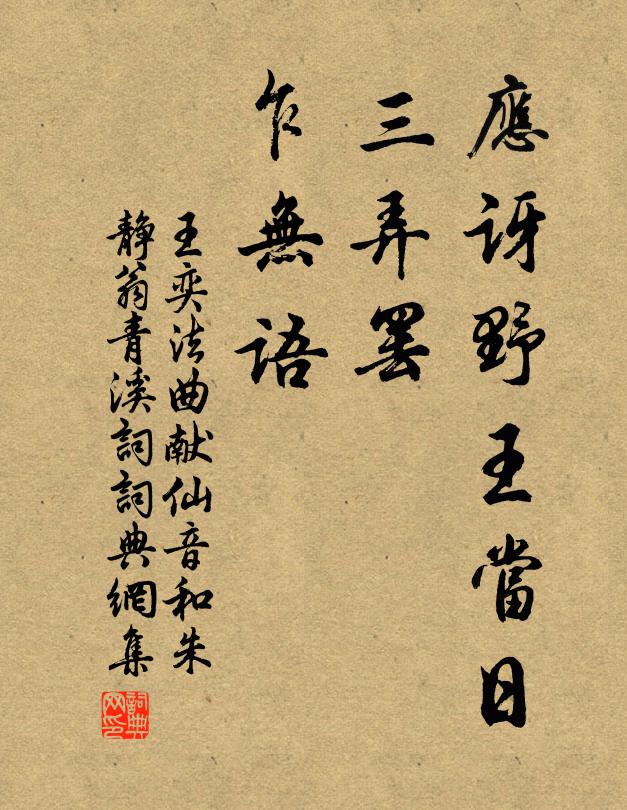 應訝野王當日
三弄罷
乍無語
王奕法曲献仙音和朱
靜翁青溪詞詞典網集
詞典
网印